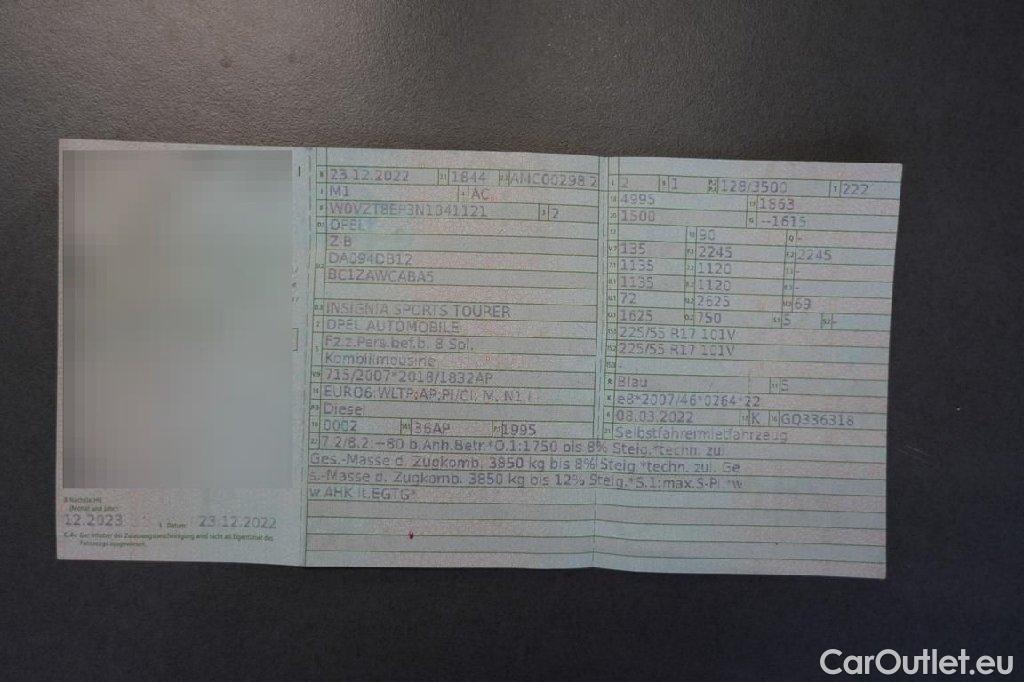 23.12.2022 1844 AMC00298 2
M1 AC
W0VZT8EP3N1041121 2
OPEL
Z-B
DA094DB12
BC1ZAWCABA5
INSIGNIA SPORTS TOURER
OPEL AUTOMOBILE
Fz.z.Pers.bef.b. 8 Spl.
Kombilimousine
715/2007*2018/1832AP
EURO6;WLTP;AP;PI/CI; M, N1 I
Diesel
0002 36AP 1995
7.2/8.2.:+80 b.Anh.Betr.*O.1:1750 bis 8% Steig.*techn. zul.
Ges.-Masse d. Zugkomb. 3850 kg bis 8% Steig.*techn. zul. Ge
s.-Masse d. Zugkomb. 3850 kg bis 12% Steig.*S.1:max.S-Pl.*w
w.AHK lt.EGTG*
2 1 128/3500 222
4995 1863
1500 --1615
90 -
135 2245 2245
1135 1120 -
1135 1120 -
72 2625 69
1625 750 5 -
225/55 R17 101V
225/55 R17 101V
-
Blau 5
e8*2007/46*0264*22
08.03.2022 K GQ336318
Selbstfahrermietfahrzeug
(Monat und Jahr)
12.2023 I Datum: 23.12.2022
C.4c Der Inhaber der Zulassungsbescheinigung wird nicht als Eigentümer des
Fahrzeugs ausgewiesen.
CarOutlet.eu